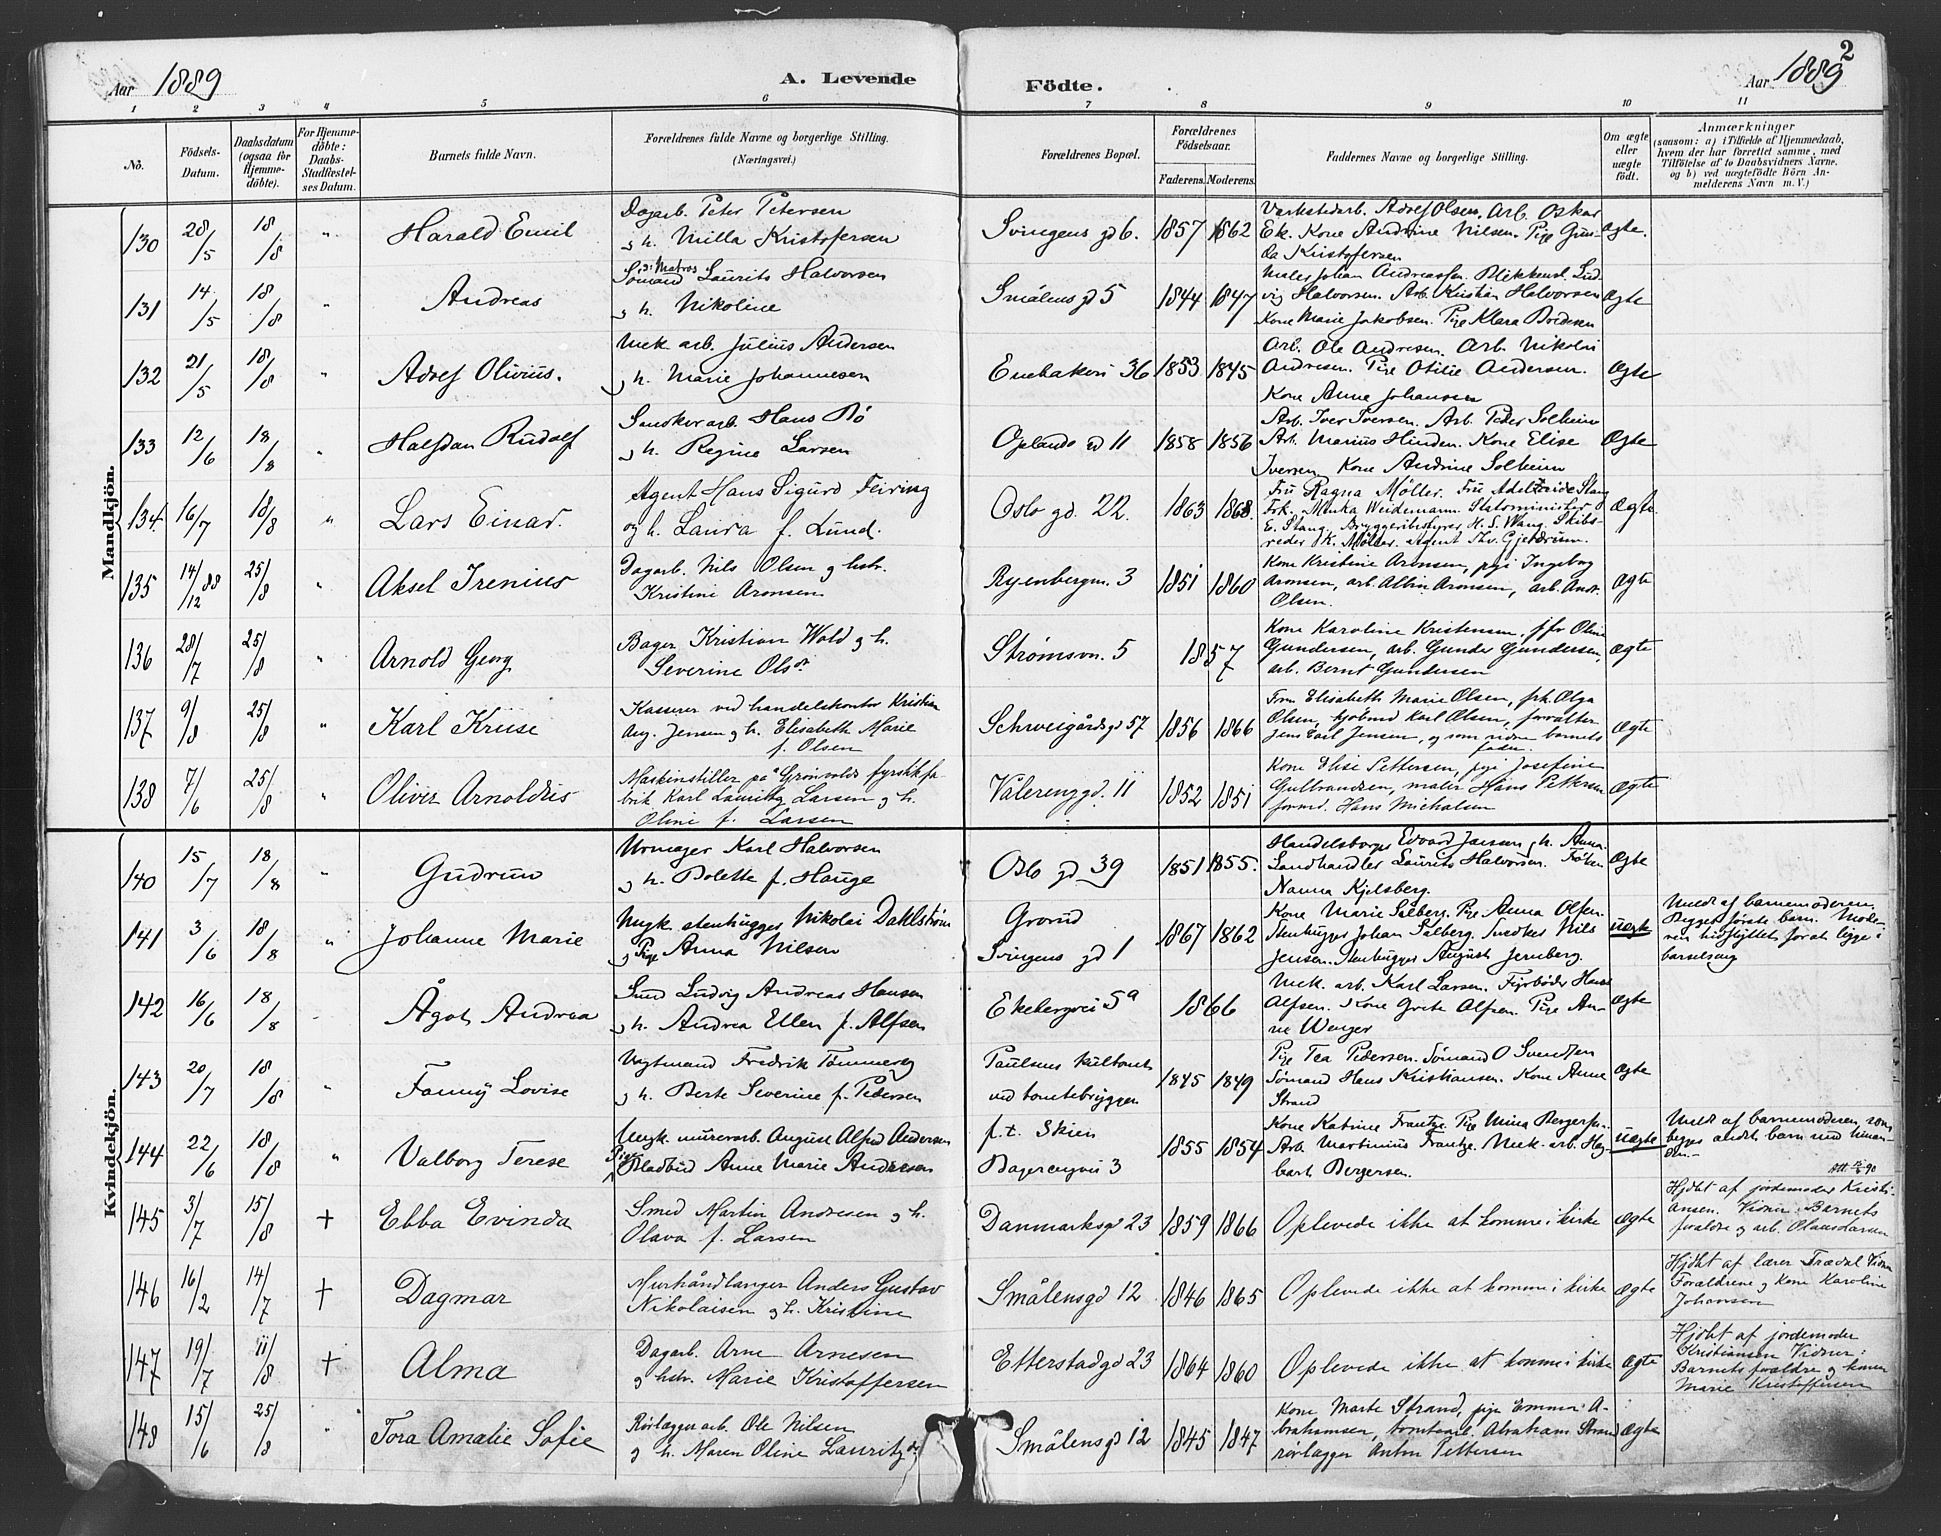 2
Aar 1889 A. Levende Födte. Aar 1889
1 2 3 4 5 6 7 8 9 10 11
No. Födsels-Datum. Daabsdatum (ogsaa for Hjemme-döbte). For Hjemme-döbte: Daabs-Stadfæstel-ses Datum. Barnets fulde Navn. Forældrenes fulde Navne og borgerlige Stilling. (Næringsvei.) Forældrenes Bopæl. Forældrenes Födselsaar. Faderens. Moderens. Faddernes Navne og borgerlige Stilling. Om ægte eller uægte födt.
Anmærkninger
(saasom: a) i Tilfælde af Hjemmedaab,
hvem der har forrettet samme, med
Tilföielse af to Daabsvidners Navne,
og b) ved uægtefödte Börn An-
melderens Navn m. V.)
Mandkjön.
130 28/5 18/8 " Harald Emil
Dagarb. Peter Petersen
og h. Milla Kristofersen
Svingens gd 6. 1857 1862
Værkstedarb. Adolf Olsen. Arb. Oskar
Ek. Kone Andrine Nilsen. Pige Gun-
da Kristofersen
Ægte.
131 14/5 18/8 " Andreas
Sömand Laurits Halvorsen
og h. Nikoline
Smålens gd 5 1844 1847
Maler Johan Andreassen. Blikkensl. Lud-
vig Halvorsen. Arb. Kristian Halvorsen
Kone Marie Jakobsen. Pige Klara Bredesen
Ægte
132 21/5 18/8 " Adolf Olivius.
Mek. arb. Julius Andersen
og h. Marie Johannesen
Enebakvei 36 1853 1845
Arb. Ole Andresen. Arb. Nikolai
Andresen. Pige Otilie Andersen.
Kone Anne Johansen
Ægte
133 12/6 18/8 " Halfdan Rudolf
Snedker arb. Hans Bö
og h. Regine Larsen
Oplands gd 11 1858 1856
Arb. Iver Iversen. Arb. Peder Solheim
Arb. Marius Hinden. Kone Elise
Iversen Kone Andrine Solheim
Ægte
134 16/7 18/8 " Lars Einar.
Agent Hans Sigurd Feiring
og h. Laura f. Lund.
Oslo gd. 22. 1863 1868.
Fru Ragna Möller. Fru Adelheide Stang
Frk. Minka Weidemann. Statsminister
E. Stang. Bryggeribestyrer H. S. Wang. Skibs-
reder K. Möller. Agent Thv. Gjerdrum.
Ægte
135 14/12 88 25/8 " Aksel Irenius
Dagarb. Nils Olsen og hstr.
Kristine Aronsen
Ryenbergvn. 3 1851 1860
Kone Kristine Aronsen, pige Ingeborg
Aronsen, arb. Albin Aronsen, arb. Andr.
Olsen.
Ægte
136 28/7 25/8 " Arnold Georg
Bager Kristian Wold og h.
Severine Olsdr.
Strömsvn. 5 1857
Kone Karoline Kristensen, jfr Oline
Gundersen, arb. Gunder Gundersen,
arb. Bernt Gundersen
Ægte
137 9/8 25/8 " Karl Kruse
Kasserer ved handelskontor Kristian
Aug. Jensen og h. Elisabeth Marie
f. Olsen
Schweigårdsgd 57 1856 1866
Fru Elisabeth Marie Olsen, frk. Olga
Olsen, kjöbmd Karl Olsen, forvalter
Jens Carl Jensen, og som vidne barnets
fader.
Ægte
138 7/6 25/8 " Oliver Arnoldius
Maskinstiller på Grönvolds fyrstikfa-
brik Karl Lauritz Larsen og h.
Oline f. Larsen
Vålerenggd. 11 1852 1851
Kone Elise Pettersen, pige Josefine
Gulbrandsen, maler Hans Pettersen
formd. Hans Michalsen
Ægte
Kvindekjön.
140 15/7 18/8 " Gudrun
Urmager Karl Halvorsen
og h. Bolette f. Hauge
Oslo gd 39 1851 1855.
Handelsborger Edvard Jansen og h. Anna.
Landhandler Laurits Halvorsen. Fröken
Nanna Kjelsberg.
Ægte
141 3/6 18/8 " Johanne Marie
Ungk. stenhugger Nikolai Dahlström
og Pige Anna Nilsen
Grorud
Svingens gd 1 1867 1862
Kone Marie Salberg. Pige Anna Olsen.
Stenhugger Johan Salberg. Snedker Nils
Jensen. Stenhugger August Jernberg.
uægte
Meldt af barnemoderen.
Begges förste barn. Mode-
ren hidflyttet for at ligge i
barselseng
142 16/6 18/8 Ågot Andrea
Smed Ludvig Andreas Hansen
og h. Andrea Ellen f. Alfsen
Ekebergvei 5a 1866
Mek. arb. Karl Larsen. Fyrböder Hans
Alfsen. Kone Grete Alfsen. Pige An-
ne Wenger
Ægte
143 20/7 18/8 " Fanny Lovise
Vagtmand Fredrik Tömmerås
og h. Berte Severine f. Pedersen
Paulsens kultomt
ved tomtebryggen 1845 1849
Pige Tea Pedersen. Sömand O Svendsen
Sömand Hans Kristiansen. Kone Anne
Strand
Ægte
144 22/6 18/8 " Valborg Terese
Ungk. murerarb. August Alfred Andersen
Pige Bladbud Anne Marie Andresen
f. t. Skien
Bagerengvei 3 1855 1854
Kone Katrine Frantze. Pige Mina Bergersen.
Arb. Martinius Frantze. Mek. arb. Hag-
bart Bergersen.
uægte
Meldt af barnemoderen, som
begges andet barn med hinan-
den.
145 3/7 15/8 + Ebba Evinda
Smed Martin Andresen og h.
Olava f. Larsen
Danmarksgd 23 1859 1866
Oplevede ikke at komme i kirke
Ægte
Hjdbt af jordemoder Kristi-
ansen. Vidner: Barnets
forældre og arb.
146 16/2 14/7 + Dagmar
Murhåndlanger Anders Gustav
Nikolaisen og h. Kristine
Smålensgd 12 1846 1865
Oplevede ikke at komme i kirke
Ægte
Hjdbt af lærer Trædal Vidner
Forældrene og Kone Karoline
Johansen
147 19/7 11/8 + Alma
Dagarb. Arne Arnesen
og hstr. Marie Kristoffersen
Etterstadgd 23 1864 1860
Oplevede ikke at komme i kirke
Ægte
Hjdbt af jordemoder
Kristiansen Vidner:
Barnets forældre og konen
Marie Kristoffersen
148 15/6 25/8 " Tora Amalie Sofie
Rörlægger arb. Ole Nilsen
og h. Maren Oline Lauritzdr
Smålensgd 12 1845 1847
Kone Marte Strand, pige Emma A-
brahamsen, tomtearb. Abraham Strand
rörlægger Anton Pettersen
Ægte